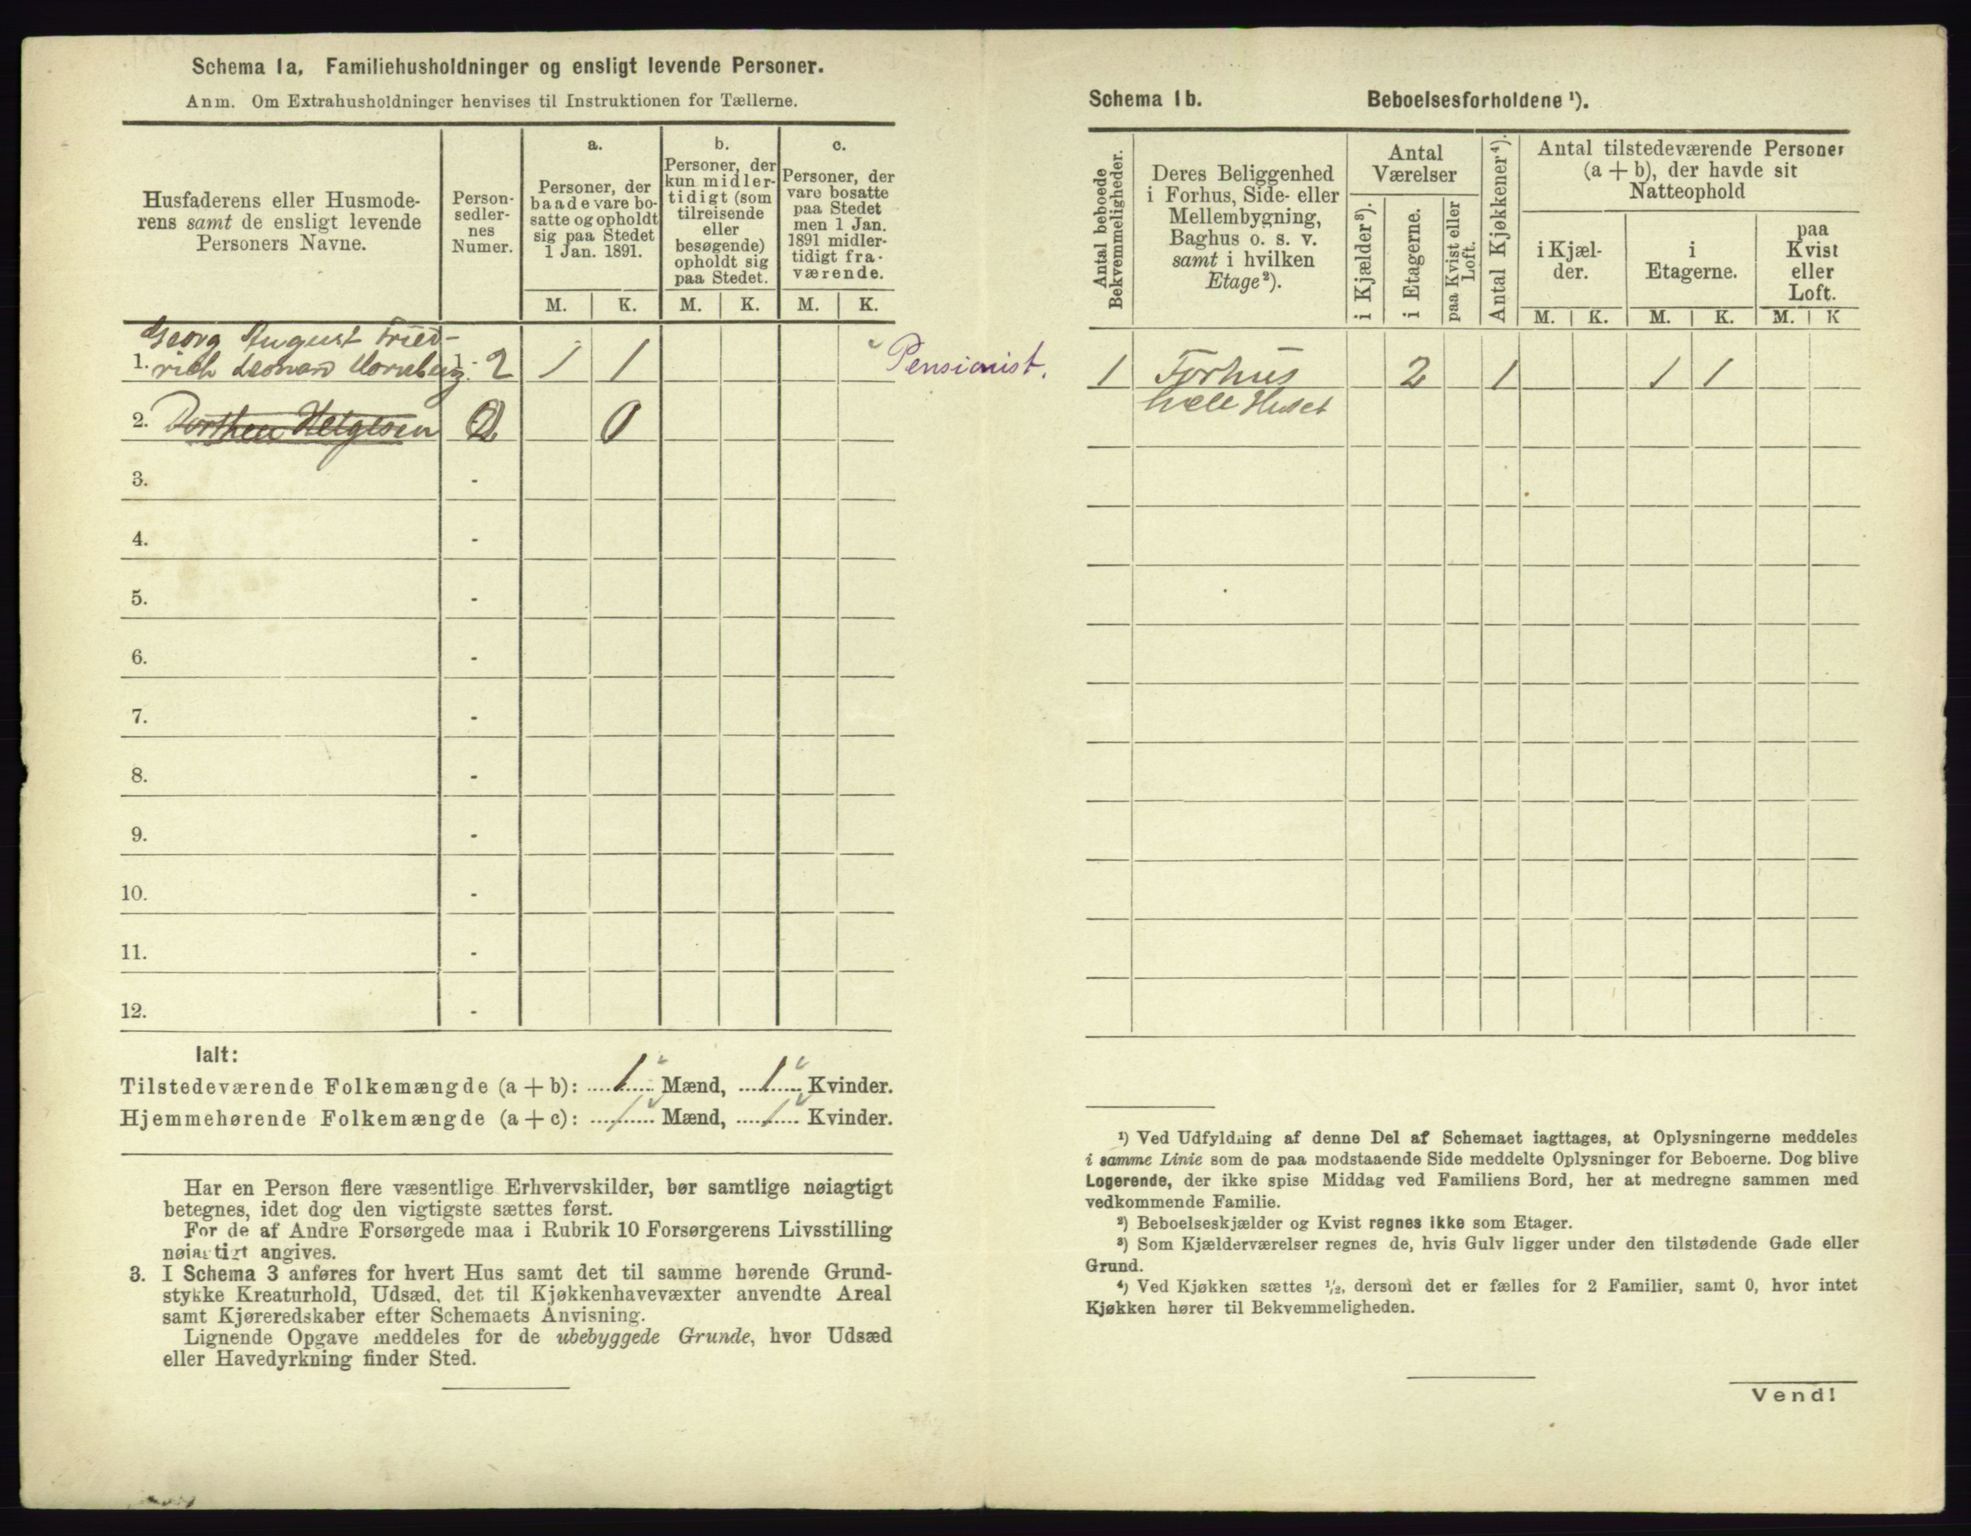 Schema 1a. Familiehusholdninger og ensligt levende Personer.
Anm. Om Extrahusholdninger henvises til Instruktionen for Tællerne.
Husfaderens eller Husmode-
rens samt de ensligt levende
Personers Navne.
Person-
sedler-
nes
Numer.
a.
Personer, der
baade vare bo-
satte og opholdt
sig paa Stedet
1 Jan. 1891.
b.
Personer, der
kun midler-
tidigt (som
tilreisende
eller
besøgende)
opholdt sig
paa Stedet.
c.
Personer, der
vare bosatte
paa Stedet
men 1 Jan.
1891 midler-
tidigt fra-
værende.
M. K. M. K. M. K.
Georg August Fried-
1. rich Leonard Hornberg 1-2 1 1 Pensionist.
2. Dorthea Helgesen 2 0
3. -
4. -
5. -
6. -
7. -
8. -
9. -
10. -
11. -
12. -
Ialt:
Tilstedeværende Folkemængde (a + b): 1 Mænd, 1 Kvinder.
Hjemmehørende Folkemængde (a + c): 1 Mænd, 1 Kvinder.
Har en Person flere væsentlige Erhvervskilder, bør samtlige nøiagtigt
betegnes, idet dog den vigtigste sættes først.
For de af Andre Forsørgede maa i Rubrik 10 Forsørgerens Livsstilling
nøiagtigt angives.
3. I Schema 3 anføres for hvert Hus samt det til samme hørende Grund-
stykke Kreaturhold, Udsæd, det til Kjøkkenhavevæxter anvendte Areal
samt Kjøreredskaber efter Schemaets Anvisning.
Lignende Opgave meddeles for de ubebyggede Grunde, hvor Udsæd
eller Havedyrkning finder Sted.
Schema 1b. Beboelsesforholdene ¹).
Antal beboede
Bekvemmeligheder.
Deres Beliggenhed
i Forhus, Side- eller
Mellembygning,
Baghus o. s. v.
samt i hvilken
Etage ²).
Antal
Værelser
i Kjælder ³).
i Etagerne.
paa Kvist eller
Loft.
Antal Kjøkkener ⁴).
Antal tilstedeværende Personer
(a + b), der havde sit
Natteophold
i Kjæl-
der.
i
Etagerne.
paa
Kvist
eller
Loft.
M. K. M. K. M. K
1 Forhus 2 1 1 1
hele Huset
¹) Ved Udfyldning af denne Del af Schemaet iagttages, at Oplysningerne meddeles
i samme Linie som de paa modstaaende Side meddelte Oplysninger for Beboerne. Dog blive
Logerende, der ikke spise Middag ved Familiens Bord, her at medregne sammen med
vedkommende Familie.
²) Beboelseskjælder og Kvist regnes ikke som Etager.
³) Som Kjælderværelser regnes de, hvis Gulv ligger under den tilstødende Gade eller
Grund.
⁴) Ved Kjøkken sættes ¹/₂, dersom det er fælles for 2 Familier, samt 0, hvor intet
Kjøkken hører til Bekvemmeligheden.
Vend!